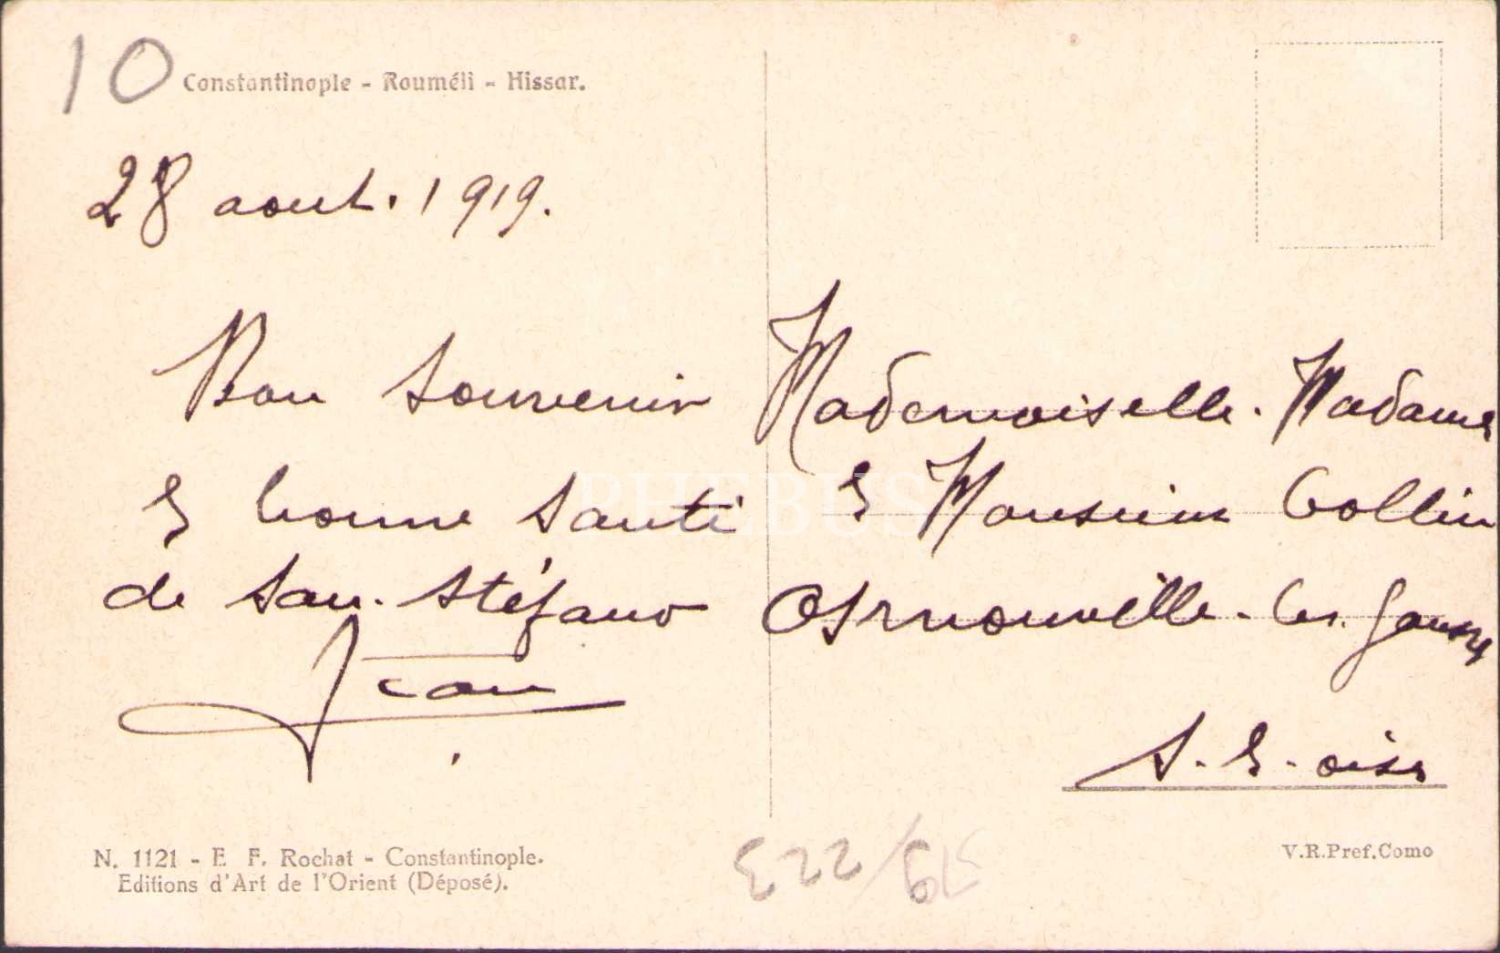 10
Constantinople - Rouméli - Hissar.
28 aout. 1919.
Bon Souvenir
& bonne Santé
de San. Stéfano
Jean
Mademoiselle. Madame
& Monsieur Collin
Arnouville. les. Gonesse
S. & . oise
PHEBUS
N. 1121 - E. F. Rochat - Constantinople.
Editions d'Art de l'Orient (Déposé).
V.R.Pref.Como